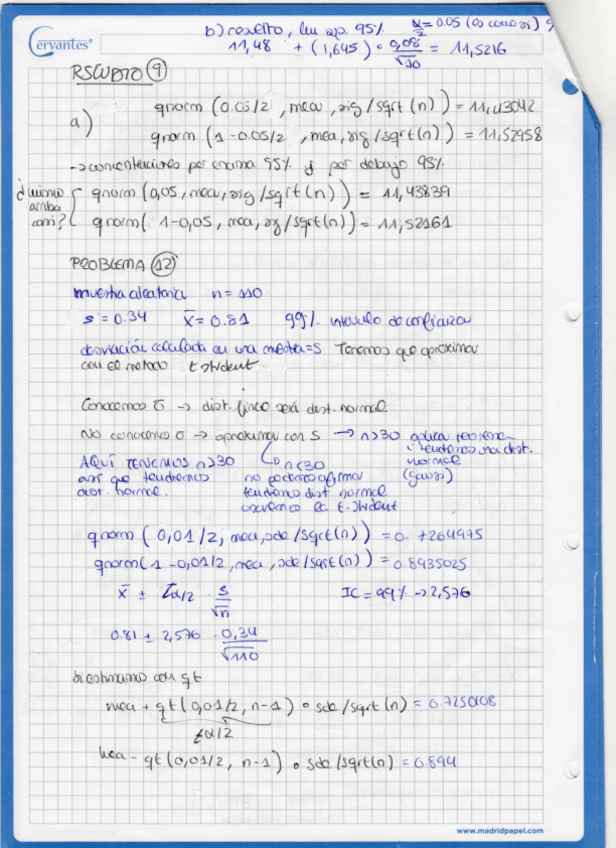 Cervantes®
b) resuelto, 95% α/2 = 0.05 (
11,48 + (1,645) · 0,08²/√10 = 11,5216
RSCUDTO 9
a) qnorm (0.05/2, mea, sig/sqrt(n)) = 11,43042
qnorm (1-0.05/2, mea, sig/sqrt(n)) = 11,52958
→ concentraciones por encima 95% y por debajo 95%
qnorm (0,05, mea, sig/sqrt(n)) = 11,43839
qnorm( 1-0,05, mea, sig/sqrt(n)) = 11,52161
PROBLEMA 12
muestra aleatoria n = 110
s = 0.34 x̄ = 0.81 99% intervalo de confianza
desviación calculada en una media = s Tenemos que aproximar
con el método t student
Conocemos σ → dist. será dist. normal
No conocemos σ → aproximar con s → n>30 aplica teorema
tendremos una dist.
normal
(gauss)
AQUÍ TENEMOS n>30
así que tendremos
dist normal.
n<30
no podemos afirmar
tendremos dist normal
usaremos la t-student
qnorm (0,01/2, mea, sde/sqrt(n)) = 0.7264975
qnorm(1-0,01/2, mea, sde/sqrt(n)) = 0.8935025
x̄ ± Zα/2 · s/√n IC = 99% → 2,576
0.81 ± 2,576 · 0,34/√110
Si estimamos con qt
mea + qt(0,01/2, n-1) · sde/sqrt(n) = 0.7250108
tα/2
mea - qt(0,01/2, n-1) · sde/sqrt(n) = 0.894
www.madridpapel.com